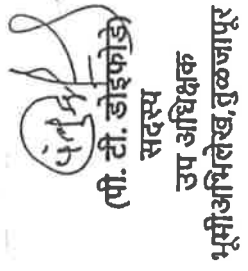 (पी. टी. डोइफोडे)
सदस्य
उप अधिक्षक
भूमीअभिलेख,तुळजापूर